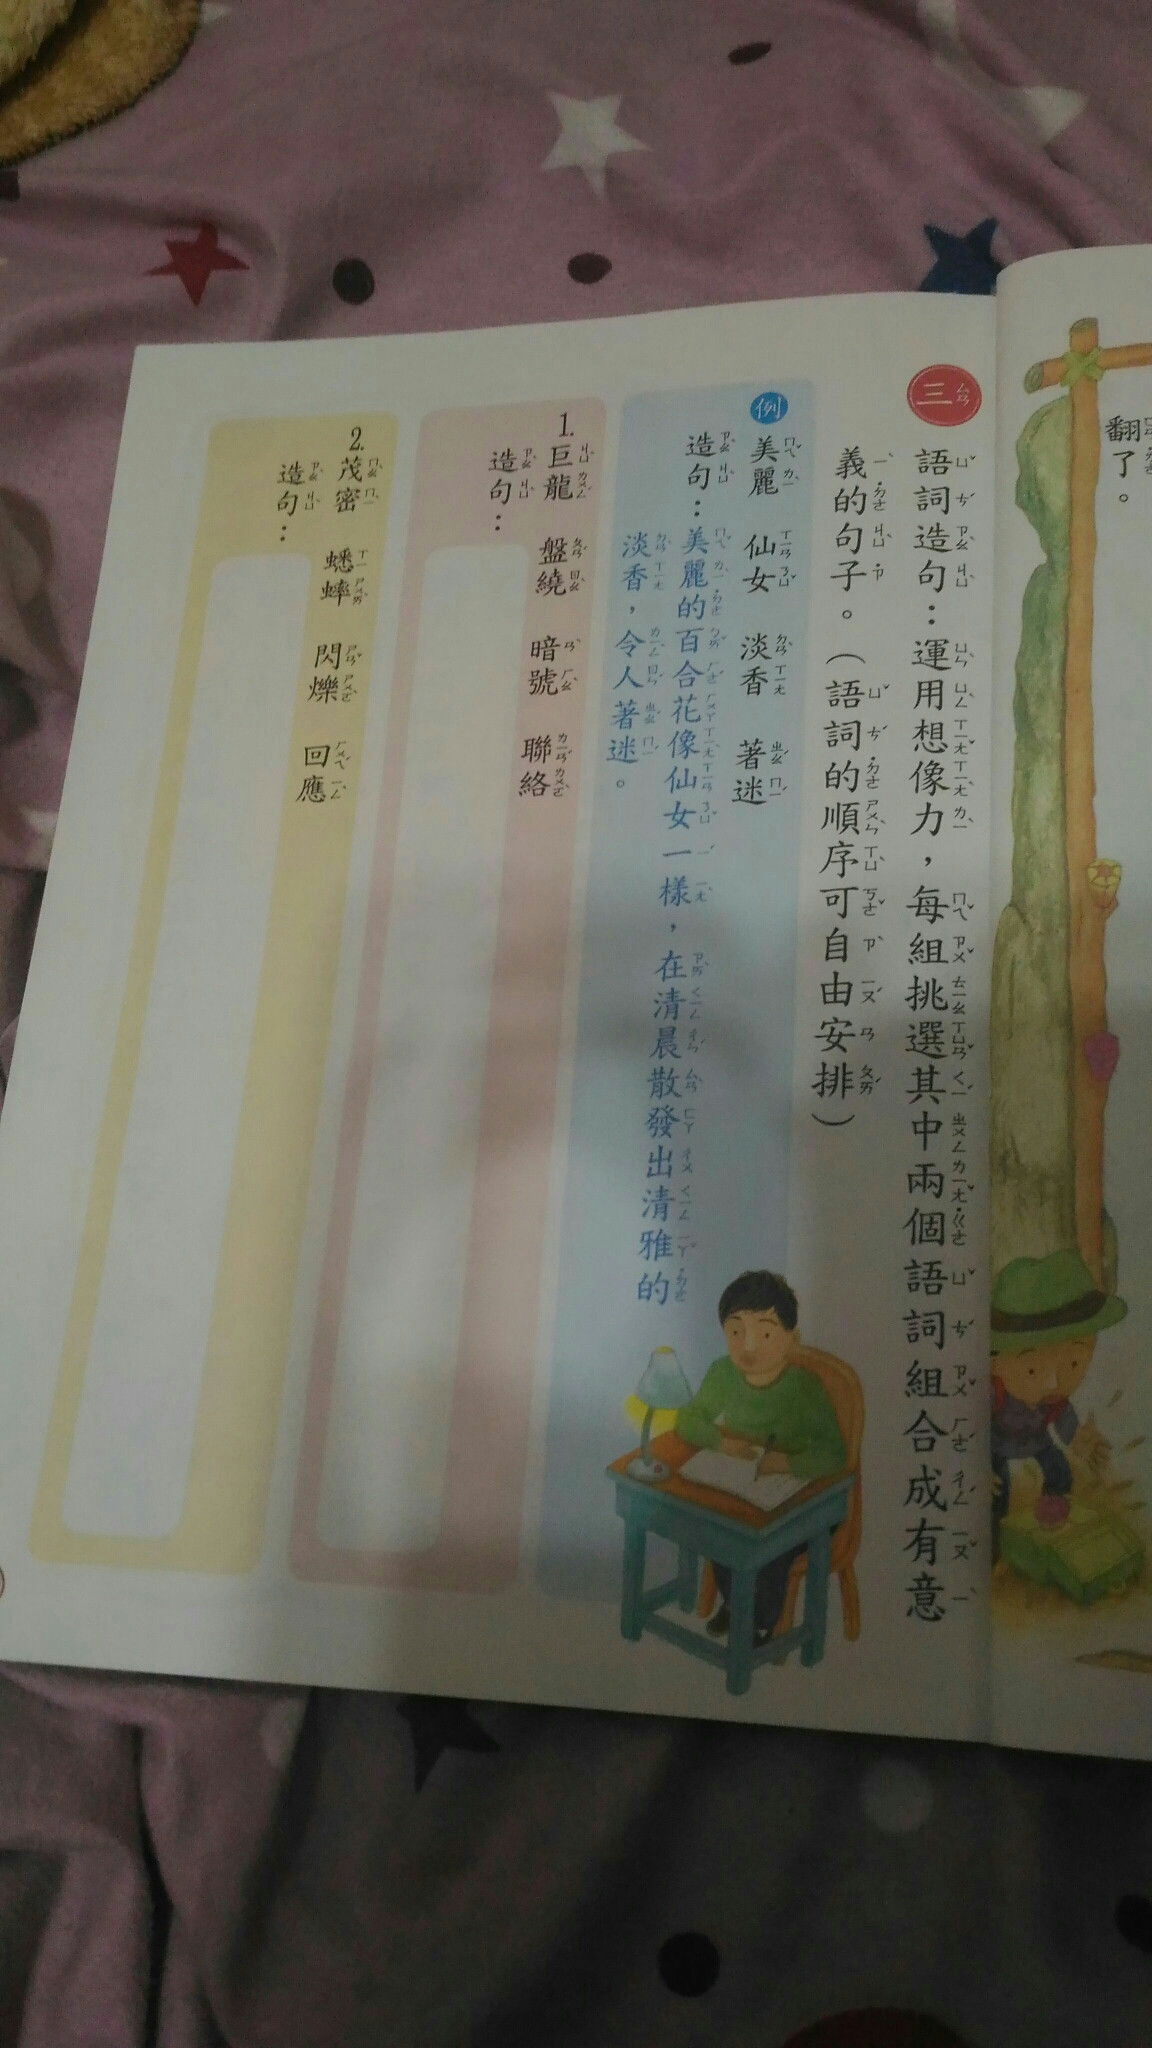 翻了。
三
語詞造句：運用想像力，每組挑選其中兩個語詞組合成有意
義的句子。（語詞的順序可自由安排）
例
美麗 仙女 淡香 著迷
造句：美麗的百合花像仙女一樣，在清晨散發出清雅的
淡香，令人著迷。
1. 巨龍 盤繞 暗號 聯絡
造句：
2. 茂密 蟋蟀 閃爍 回應
造句：